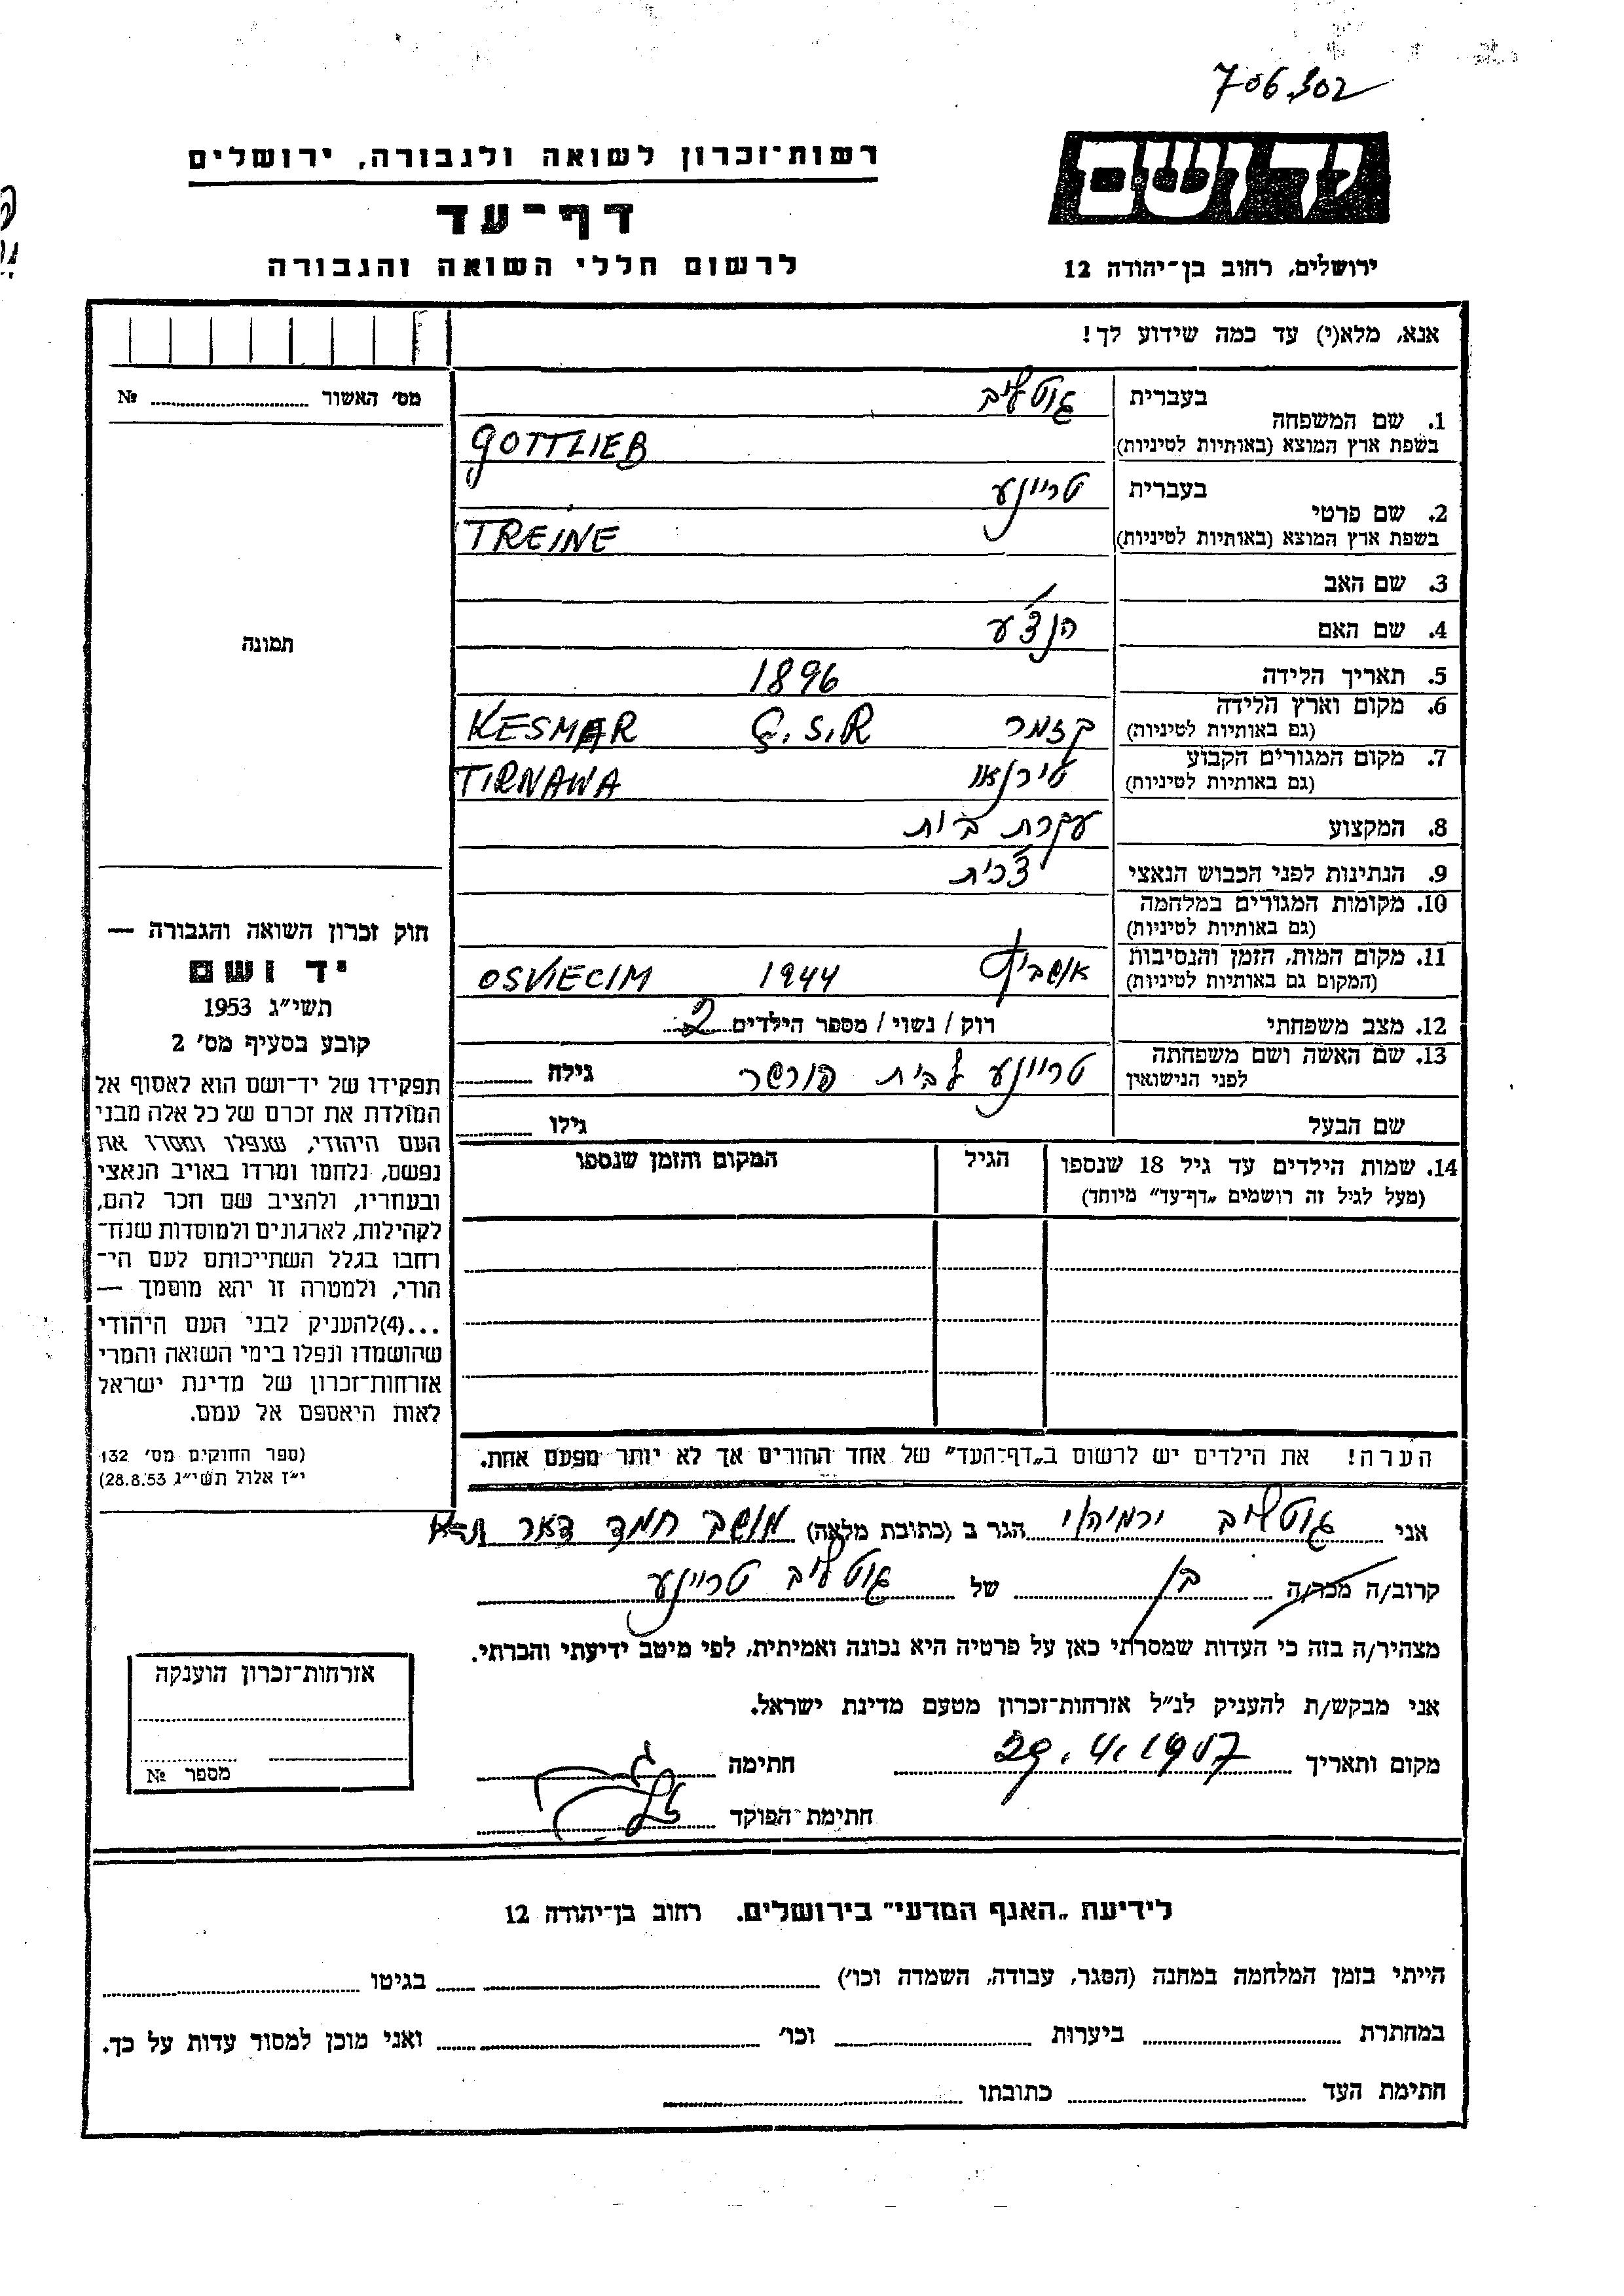 706.302
יד ושם
רשות־זכרון לשואה ולגבורה, ירושלים
דף־עד
לרשום חללי השואה והגבורה
ירושלים, רחוב בן־יהודה 12
אנא, מלא(י) עד כמה שידוע לך!
מס׳ האשור № 
בעברית גוטליב
1. שם המשפחה
בשפת ארץ המוצא (באותיות לטיניות) GOTTLIEB
בעברית טריינע
2. שם פרטי
בשפת ארץ המוצא (באותיות לטיניות) TREINE
3. שם האב
4. שם האם הנצ'ע
תמונה
5. תאריך הלידה 1896
6. מקום וארץ הלידה
(גם באותיות לטיניות) קזמר Č.S.R KESMAR
7. מקום המגורים הקבוע
(גם באותיות לטיניות) טירנאו TIRNAWA
8. המקצוע עקרת בית
9. הנתינות לפני הכבוש הנאצי צ'כית
10. מקומות המגורים במלחמה
(גם באותיות לטיניות)
11. מקום המות, הזמן והנסיבות
(המקום גם באותיות לטיניות) אושביץ 1944 OSVIECIM
12. מצב משפחתי רוק / נשוי / מספר הילדים 2
13. שם האשה ושם משפחתה
לפני הנישואין טריינע לבית פורשר גילה
שם הבעל גילו
14. שמות הילדים עד גיל 18 שנספו הגיל המקום והזמן שנספו
(מעל לגיל זה רושמים „דף־עד” מיוחד)
חוק זכרון השואה והגבורה —
יד ושם
תשי״ג 1953
קובע בסעיף מס׳ 2
תפקידו של יד־ושם הוא לאסוף אל
המולדת את זכרם של כל אלה מבני
העם היהודי, שנפלו ומסרו את
נפשם, נלחמו ומרדו באויב הנאצי
ובעוזריו, ולהציב שם וזכר להם,
לקהילות, לארגונים ולמוסדות שנח־
רבו בגלל השתייכותם לעם הי־
הודי, ולמטרה זו יהא מוסמך —
...(4)להעניק לבני העם היהודי
שהושמדו ונפלו בימי השואה והמרי
אזרחות־זכרון של מדינת ישראל
לאות היאספם אל עמם.
(ספר החוקים מס׳ 132
י״ז אלול תשי״ג 28.8.53)
הערה! את הילדים יש לרשום ב„דף־העד” של אחד ההורים אך לא יותר מפעם אחת.
אני גוטליב ירמיהו הגר ב (כתובת מלאה) מושב חמד דאר ת-א
קרוב/ה מכר/ה בן של גוטליב טריינע
מצהיר/ה בזה כי העדות שמסרתי כאן על פרטיה היא נכונה ואמיתית, לפי מיטב ידיעתי והכרתי.
אני מבקש/ת להעניק לנ״ל אזרחות־זכרון מטעם מדינת ישראל.
מקום ותאריך 29.4.1957 חתימה
חתימת־הפוקד
אזרחות־זכרון הוענקה
מספר №
לידיעת „האגף המדעי” בירושלים. רחוב בן־יהודה 12
הייתי בזמן המלחמה במחנה (הסגר, עבודה, השמדה וכו׳) בגיטו
במחתרת ביערות וכו׳ ואני מוכן למסור עדות על כך.
חתימת העד כתובתו